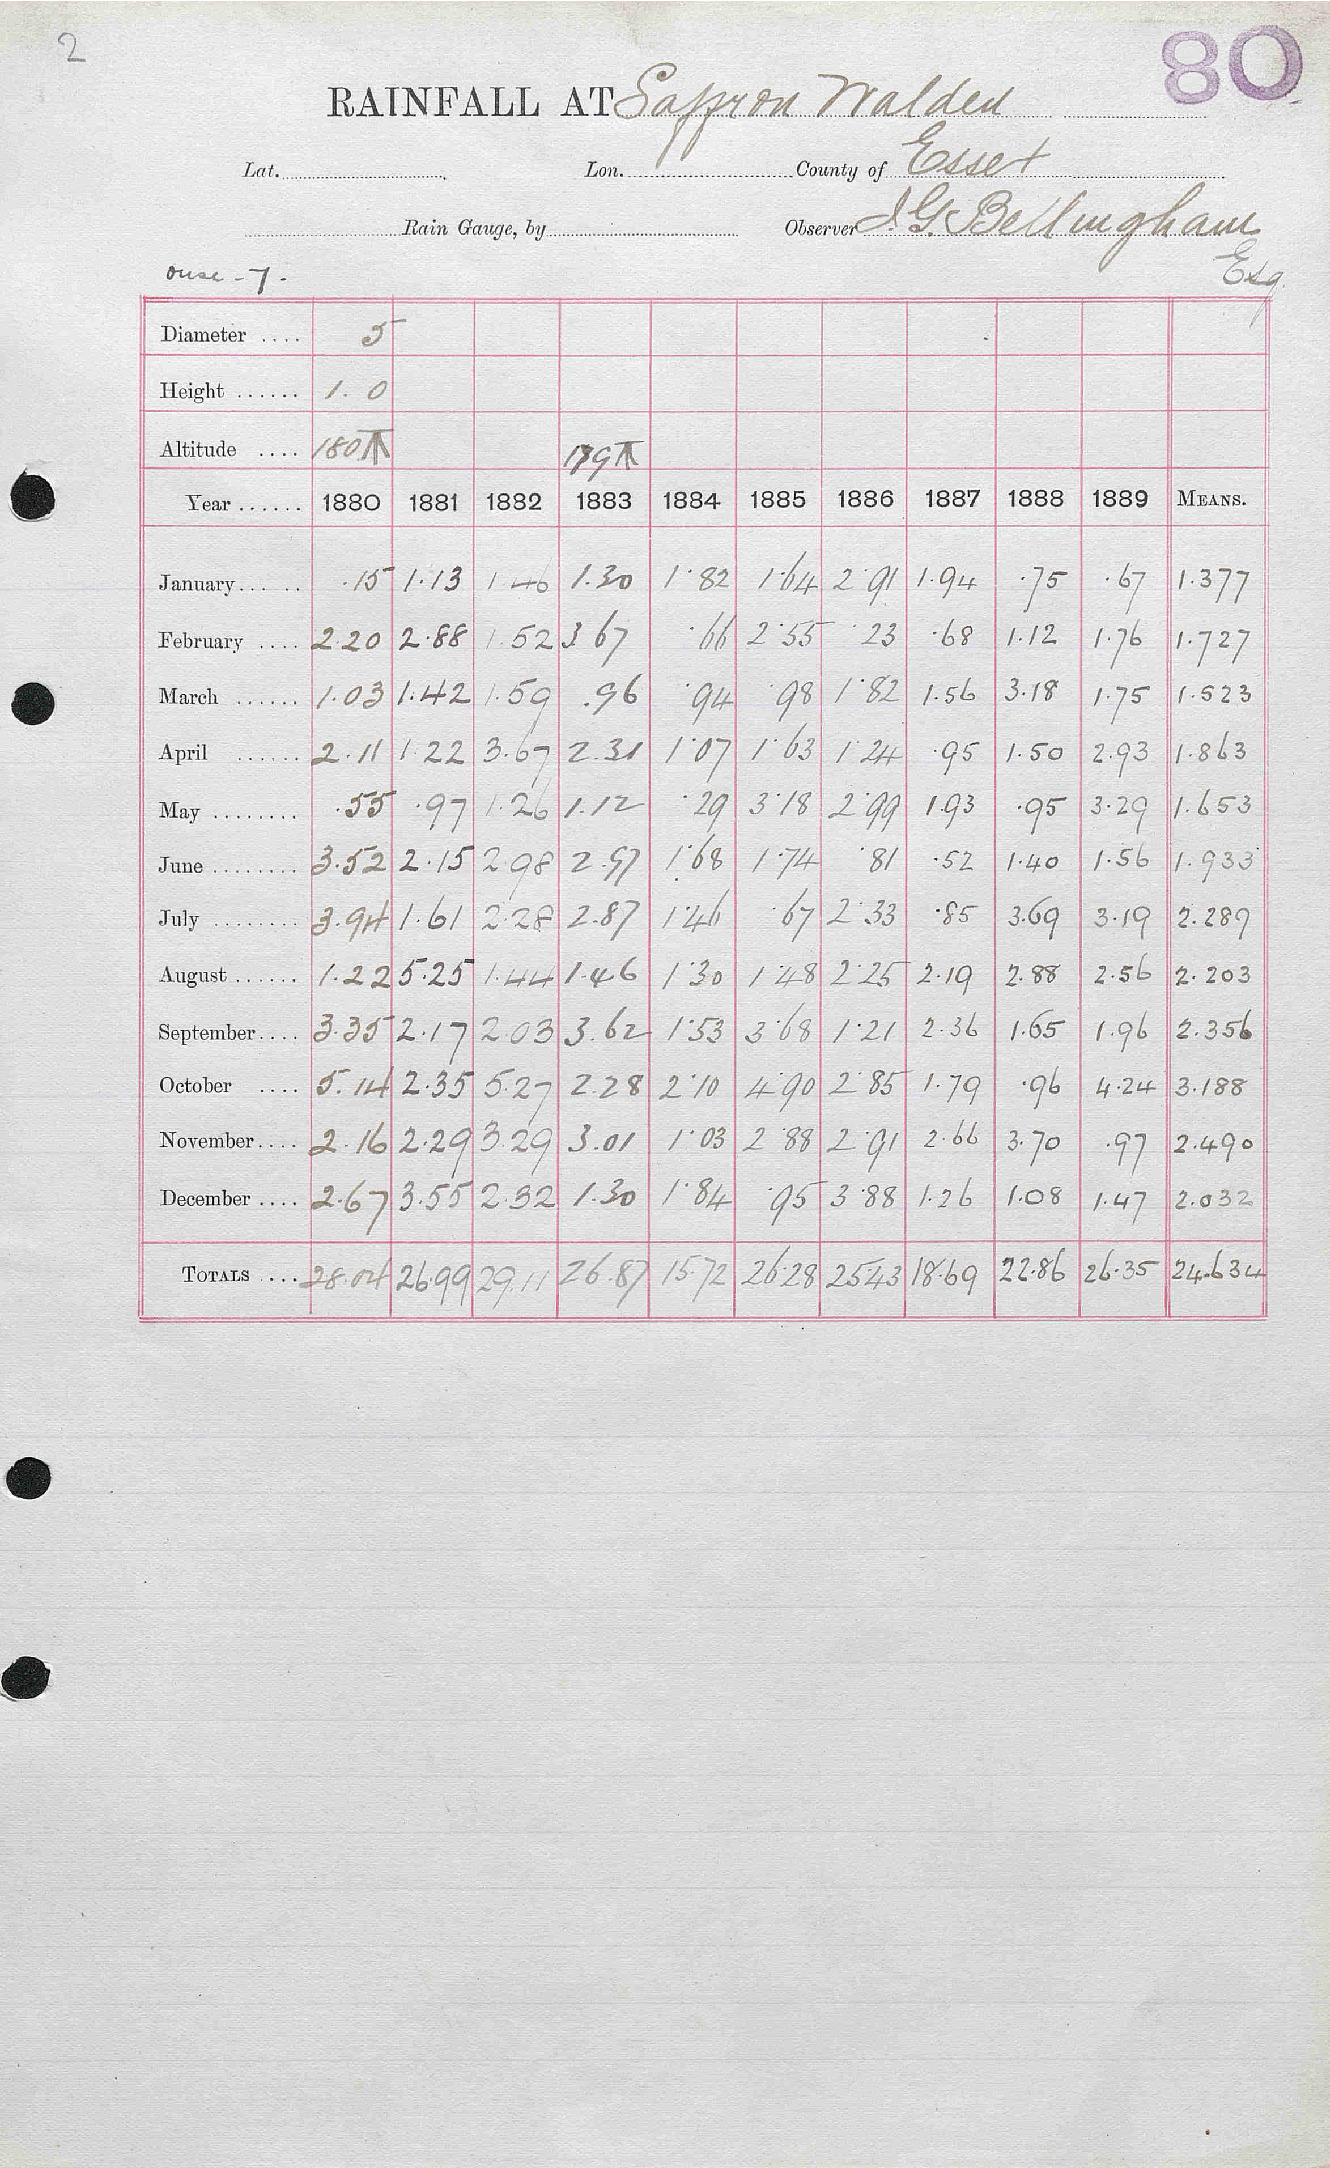 2
80
RAINFALL AT Saffron Walden
Lat. Lon. County of Essex
Rain Gauge, by Observer J.G. Bellingham
Esq.
Ouse - 7 -
Diameter .... 5
Height ...... 1. 0
Altitude .... 180 179
Year ...... 1880 1881 1882 1883 1884 1885 1886 1887 1888 1889 MEANS.
January ...... .15 1.13 1.46 1.30 1.82 1.64 2.91 1.94 .75 .67 1.377
February .... 2.20 2.88 1.52 3.67 .66 2.55 .23 .68 1.12 1.76 1.727
March ...... 1.03 1.42 1.59 .96 .94 .98 1.82 1.56 3.18 1.75 1.523
April ...... 2.11 1.22 3.67 2.31 1.07 1.63 1.24 .95 1.50 2.93 1.863
May ........ .55 .97 1.26 1.12 .29 3.18 2.99 1.93 .95 3.29 1.653
June ........ 3.52 2.15 2.98 2.97 1.68 1.74 .81 .52 1.40 1.56 1.933
July ........ 3.94 1.61 2.28 2.87 1.46 .67 2.33 .85 3.69 3.19 2.289
August ...... 1.22 5.25 1.44 1.46 1.30 1.48 2.25 2.19 2.88 2.56 2.203
September .... 3.35 2.17 2.03 3.62 1.53 3.68 1.21 2.36 1.65 1.96 2.356
October .... 5.14 2.35 5.27 2.28 2.10 4.90 2.85 1.79 .96 4.24 3.188
November .... 2.16 2.29 3.29 3.01 1.03 2.88 2.91 2.66 3.70 .97 2.490
December .... 2.67 3.55 2.32 1.30 1.84 .95 3.88 1.26 1.08 1.47 2.032
TOTALS .... 28.04 26.99 29.11 26.87 15.72 26.28 25.43 18.69 22.86 26.35 24.634